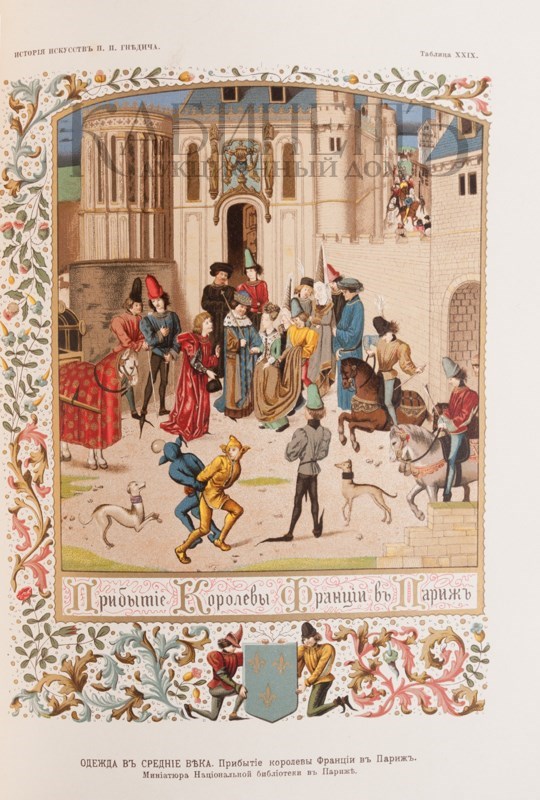 ИСТОРІЯ ИСКУССТВЪ П. П. ГНѢДИЧА.
Таблица XXIX.
КАБИНЕТЪ
АУКЦИОННЫЙ ДОМ
Прибытіе Королевы Франціи въ Парижъ
ОДЕЖДА ВЪ СРЕДНІЕ ВѢКА. Прибытіе королевы Франціи въ Парижъ.
Миніатюра Національной библіотеки въ Парижѣ.